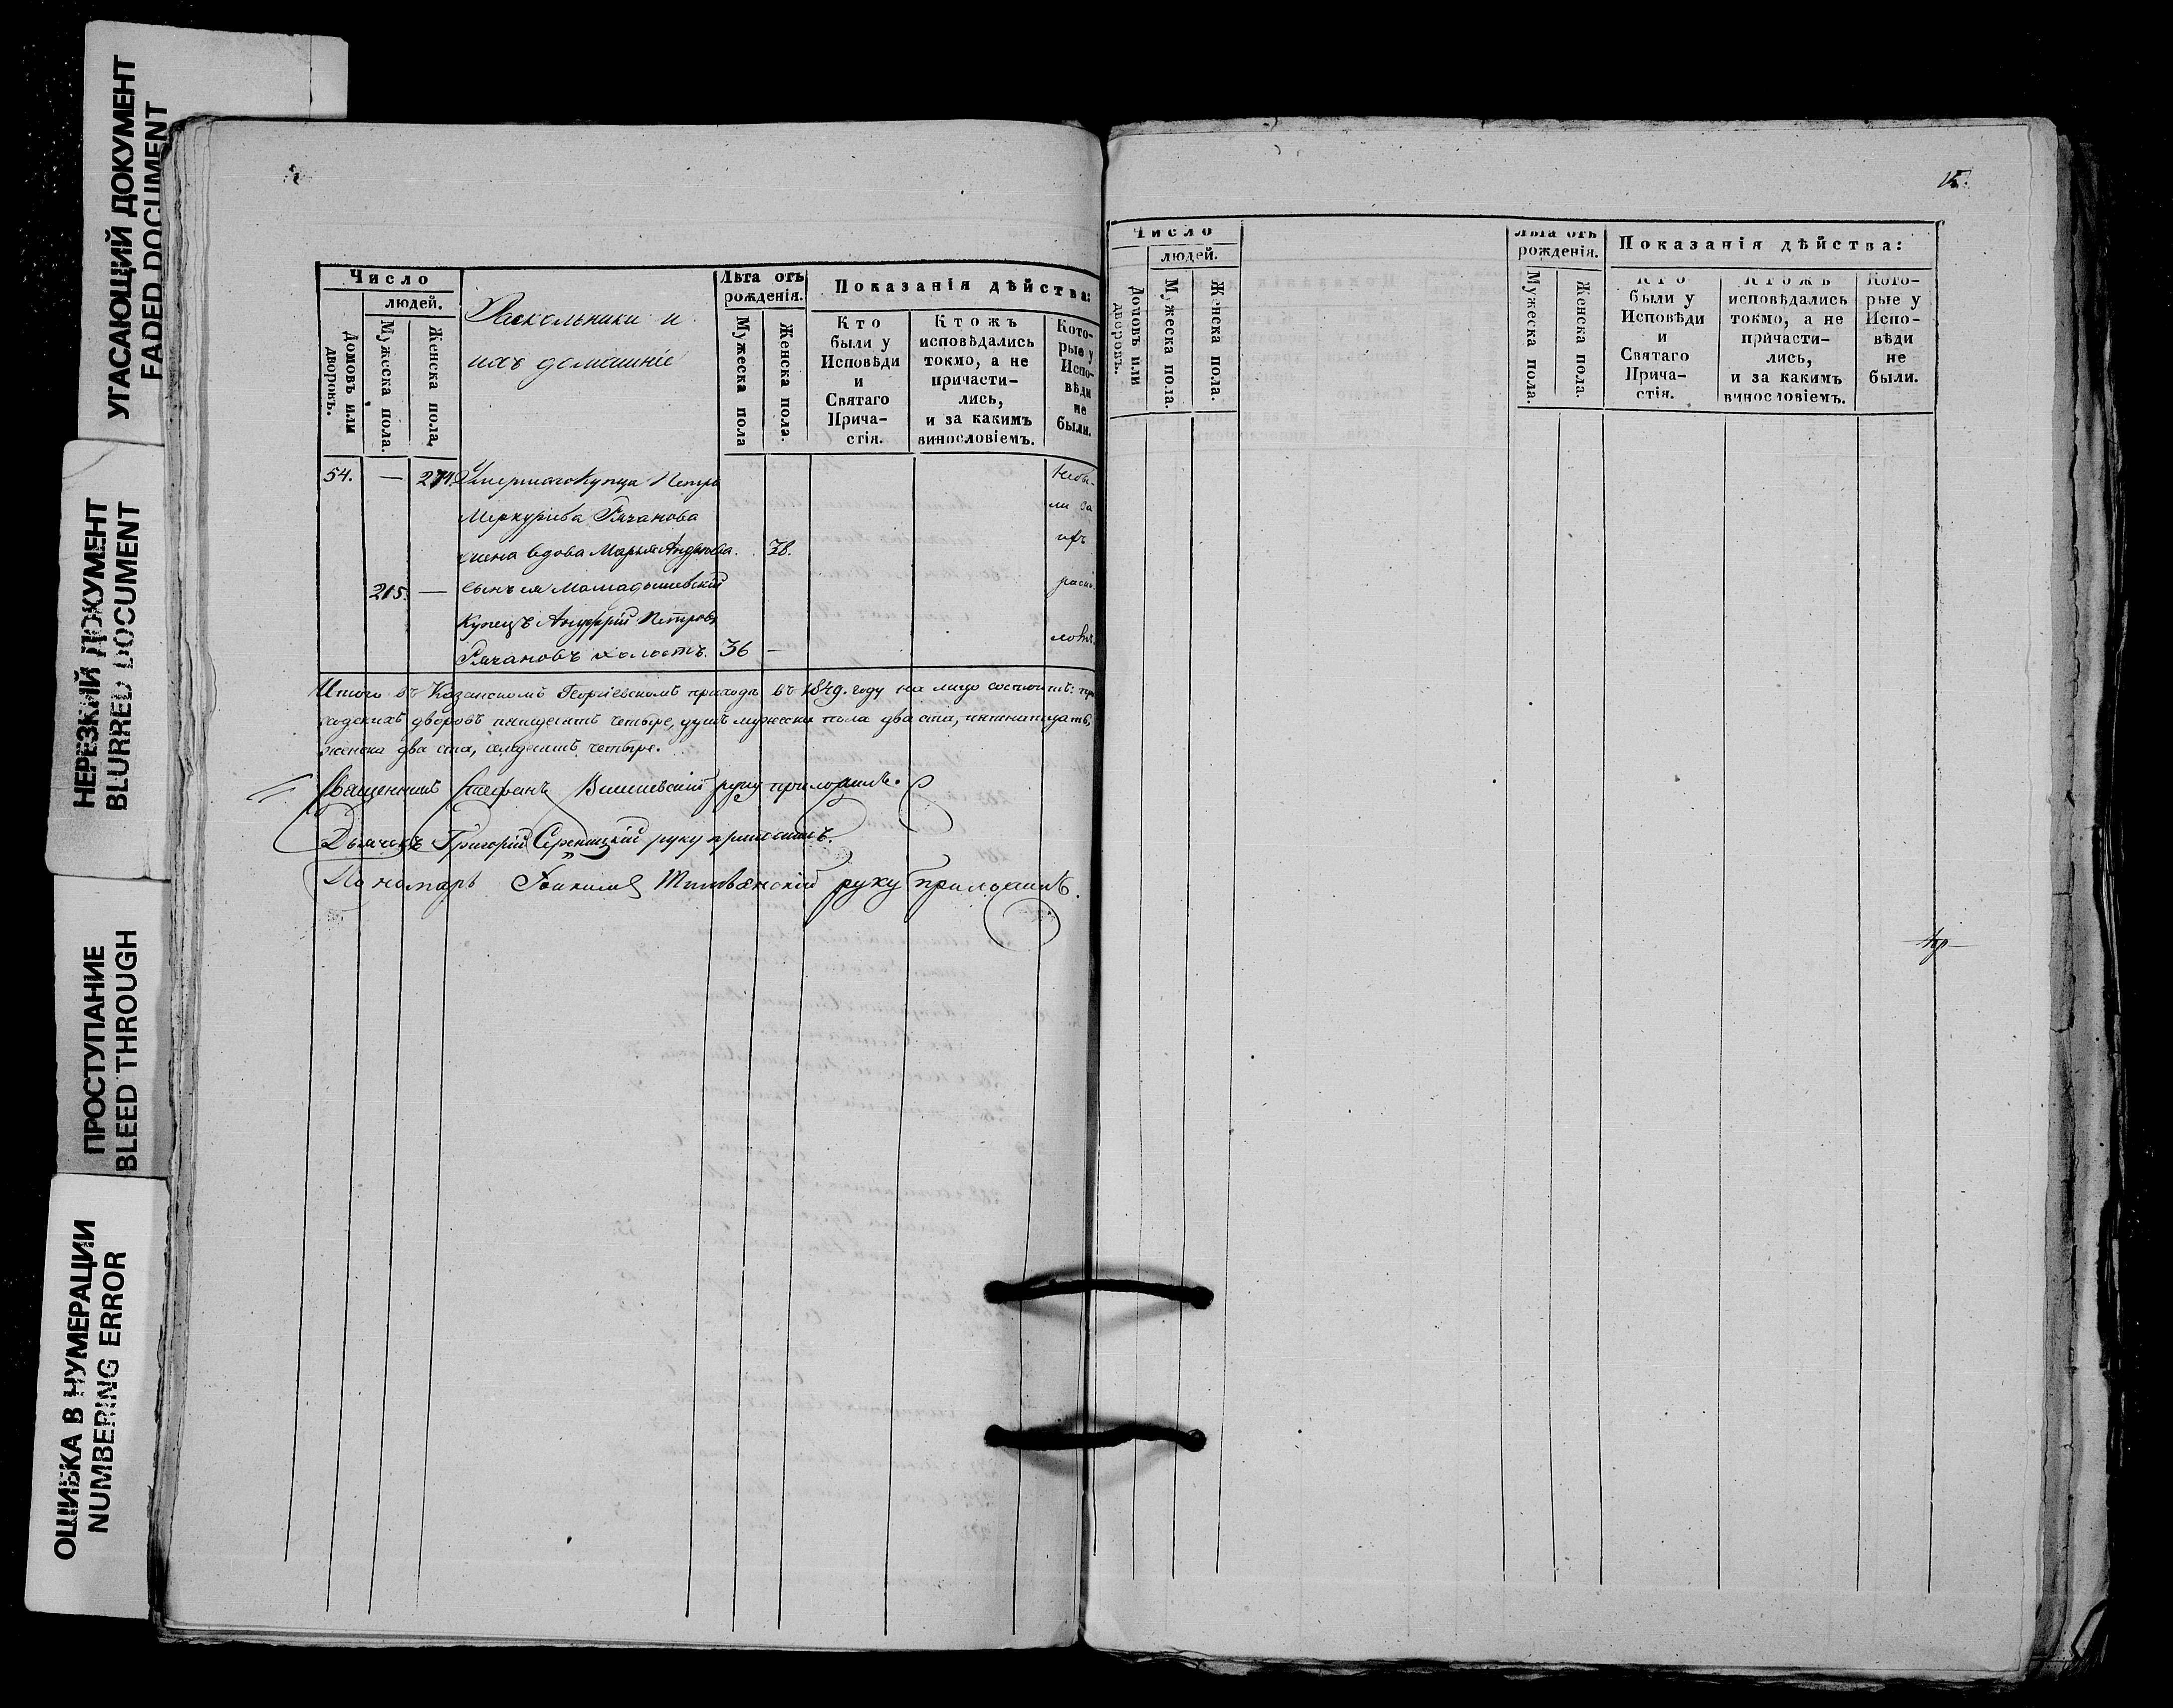 УГАСАЮЩИЙ ДОКУМЕНТ
FADED DOCUMENT
НЕРЕЗКИЙ ДОКУМЕНТ
BLURRED DOCUMENT
ПРОСТУПАНИЕ
BLEED THROUGH
ОШИБКА В НУМЕРАЦИИ
NUMBERING ERROR
Число
людей.
Домовъ или дворовъ.
Мужеска пола.
Женска пола.
Раскольники и
ихъ домашніе
Лѣта отъ рожденія.
Мужеска пола
Женска пола.
Показанія дѣйства:
Кто были у Исповѣди и Святаго Прича-стія.
Ктожъ исповѣдались токмо, а не причасти-лись, и за какимъ винословіемъ.
Кото-рые у Испо-вѣди не были.
54. — 274. Умершаго Купца Петра Небы-
Меркурьева Рачанова ли за
жена вдова Марья Андреева. 78. ихъ
215. — Сынъ ея Мамадышевскій раско
Купецъ Андрей Петровъ
Рачановъ холостъ. 36 —
Итого въ Казанскомъ Георгіевскомъ приходѣ въ 1849. году на лицо состоитъ: при
ходскихъ дворовъ пятьдесятъ четыре, душъ мужеска пола два ста, пятнатцать,
женска два ста, семдесятъ четыре.
Священникъ Стефанъ Вишневскій руку приложилъ.
Дьячекъ Григорій руку приложилъ.
Пономарь руку приложилъ.
Число
людей.
Домовъ или дворовъ.
Мужеска пола.
Женска пола.
Лѣта отъ рожденія.
Мужеска пола.
Женска пола.
Показанія дѣйства:
Кто были у Исповѣди и Святаго Прича-стія.
Ктожъ исповѣдались токмо, а не причасти-лись, и за какимъ винословіемъ.
Кото-рые у Испо-вѣди не были.